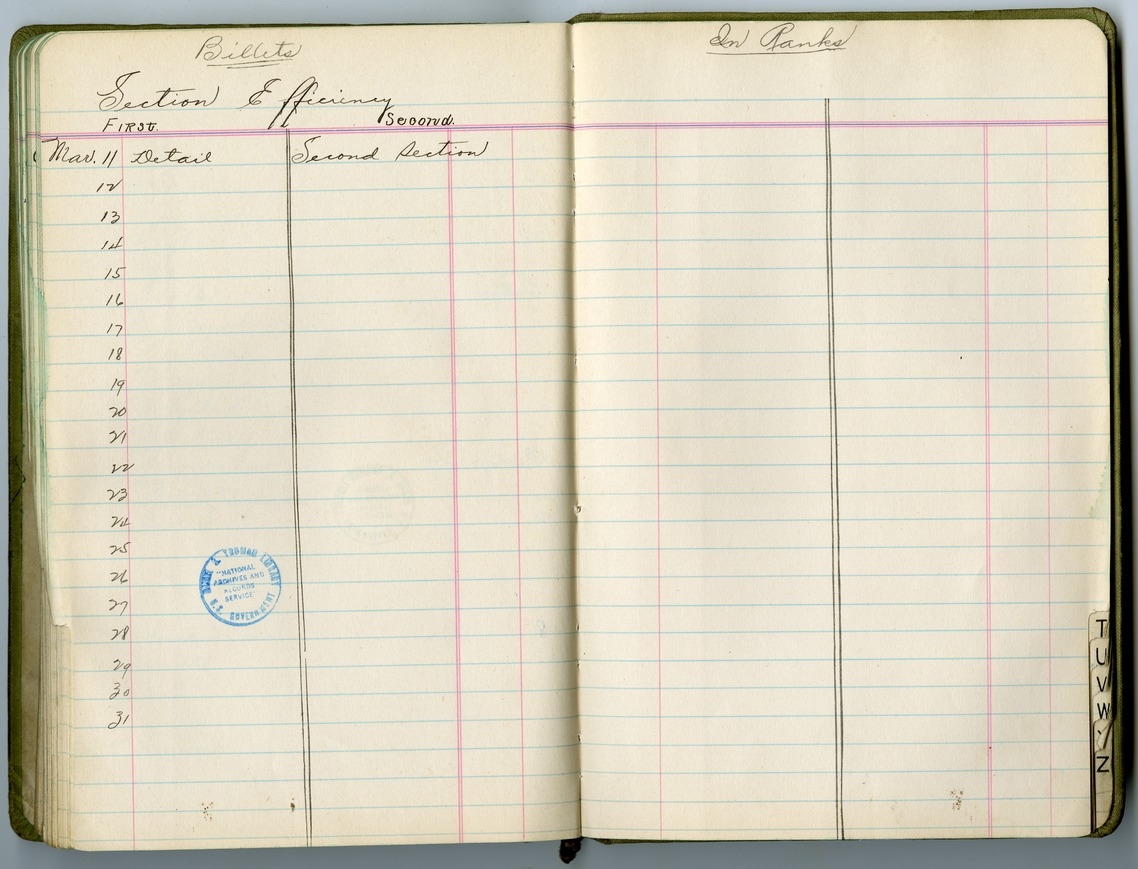 Billets
Section Efficiency
First. Second.
Mar. 11 Detail Second Section
12
13
14
15
16
17
18
19
20
21
22
23
24
25
26
27
28
29
30
31
HARRY S. TRUMAN LIBRARY
"NATIONAL
ARCHIVES AND
RECORDS
SERVICE"
U.S. GOVERNMENT
In Ranks
T
U
V
W
Y
Z